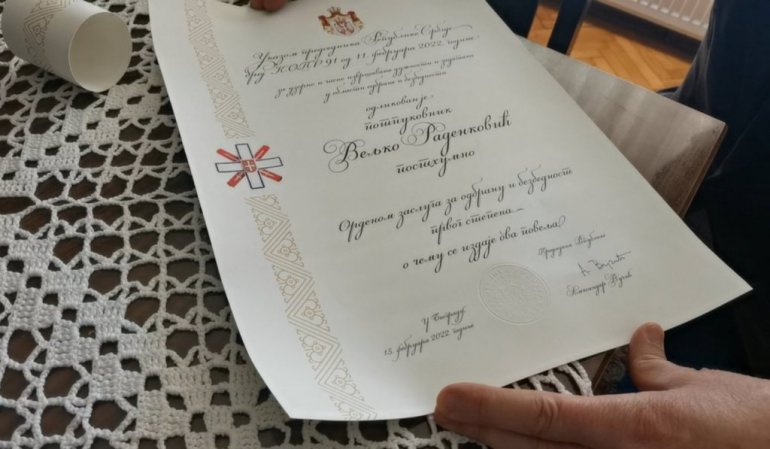 Указом председника Републике Србије
број КОПО 91 од 11. фебруара 2022. године
за узорно и часно извршавање дужности и задатака
у области одбране и безбедности
одликован је
потпуковник
Вељко Раденковић
постхумно
Орденом заслуга за одбрану и безбедност
првог степена
о чему се издаје ова повеља
Председник Републике
Александар Вучић
У Београду
15. фебруара 2022. године